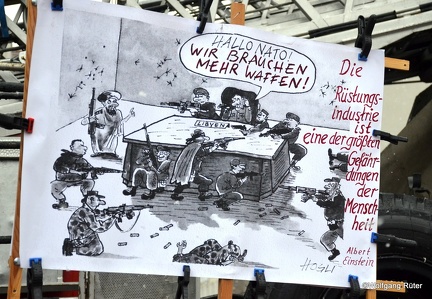 HALLO NATO!
WIR BRAUCHEN
MEHR WAFFEN!
LIBYEN
Die
Rüstungs-
industrie
ist
eine der größten
Gefähr-
dungen
der
Mensch-
heit
Albert
Einstein
HOGLI
©Wolfgang Rüter